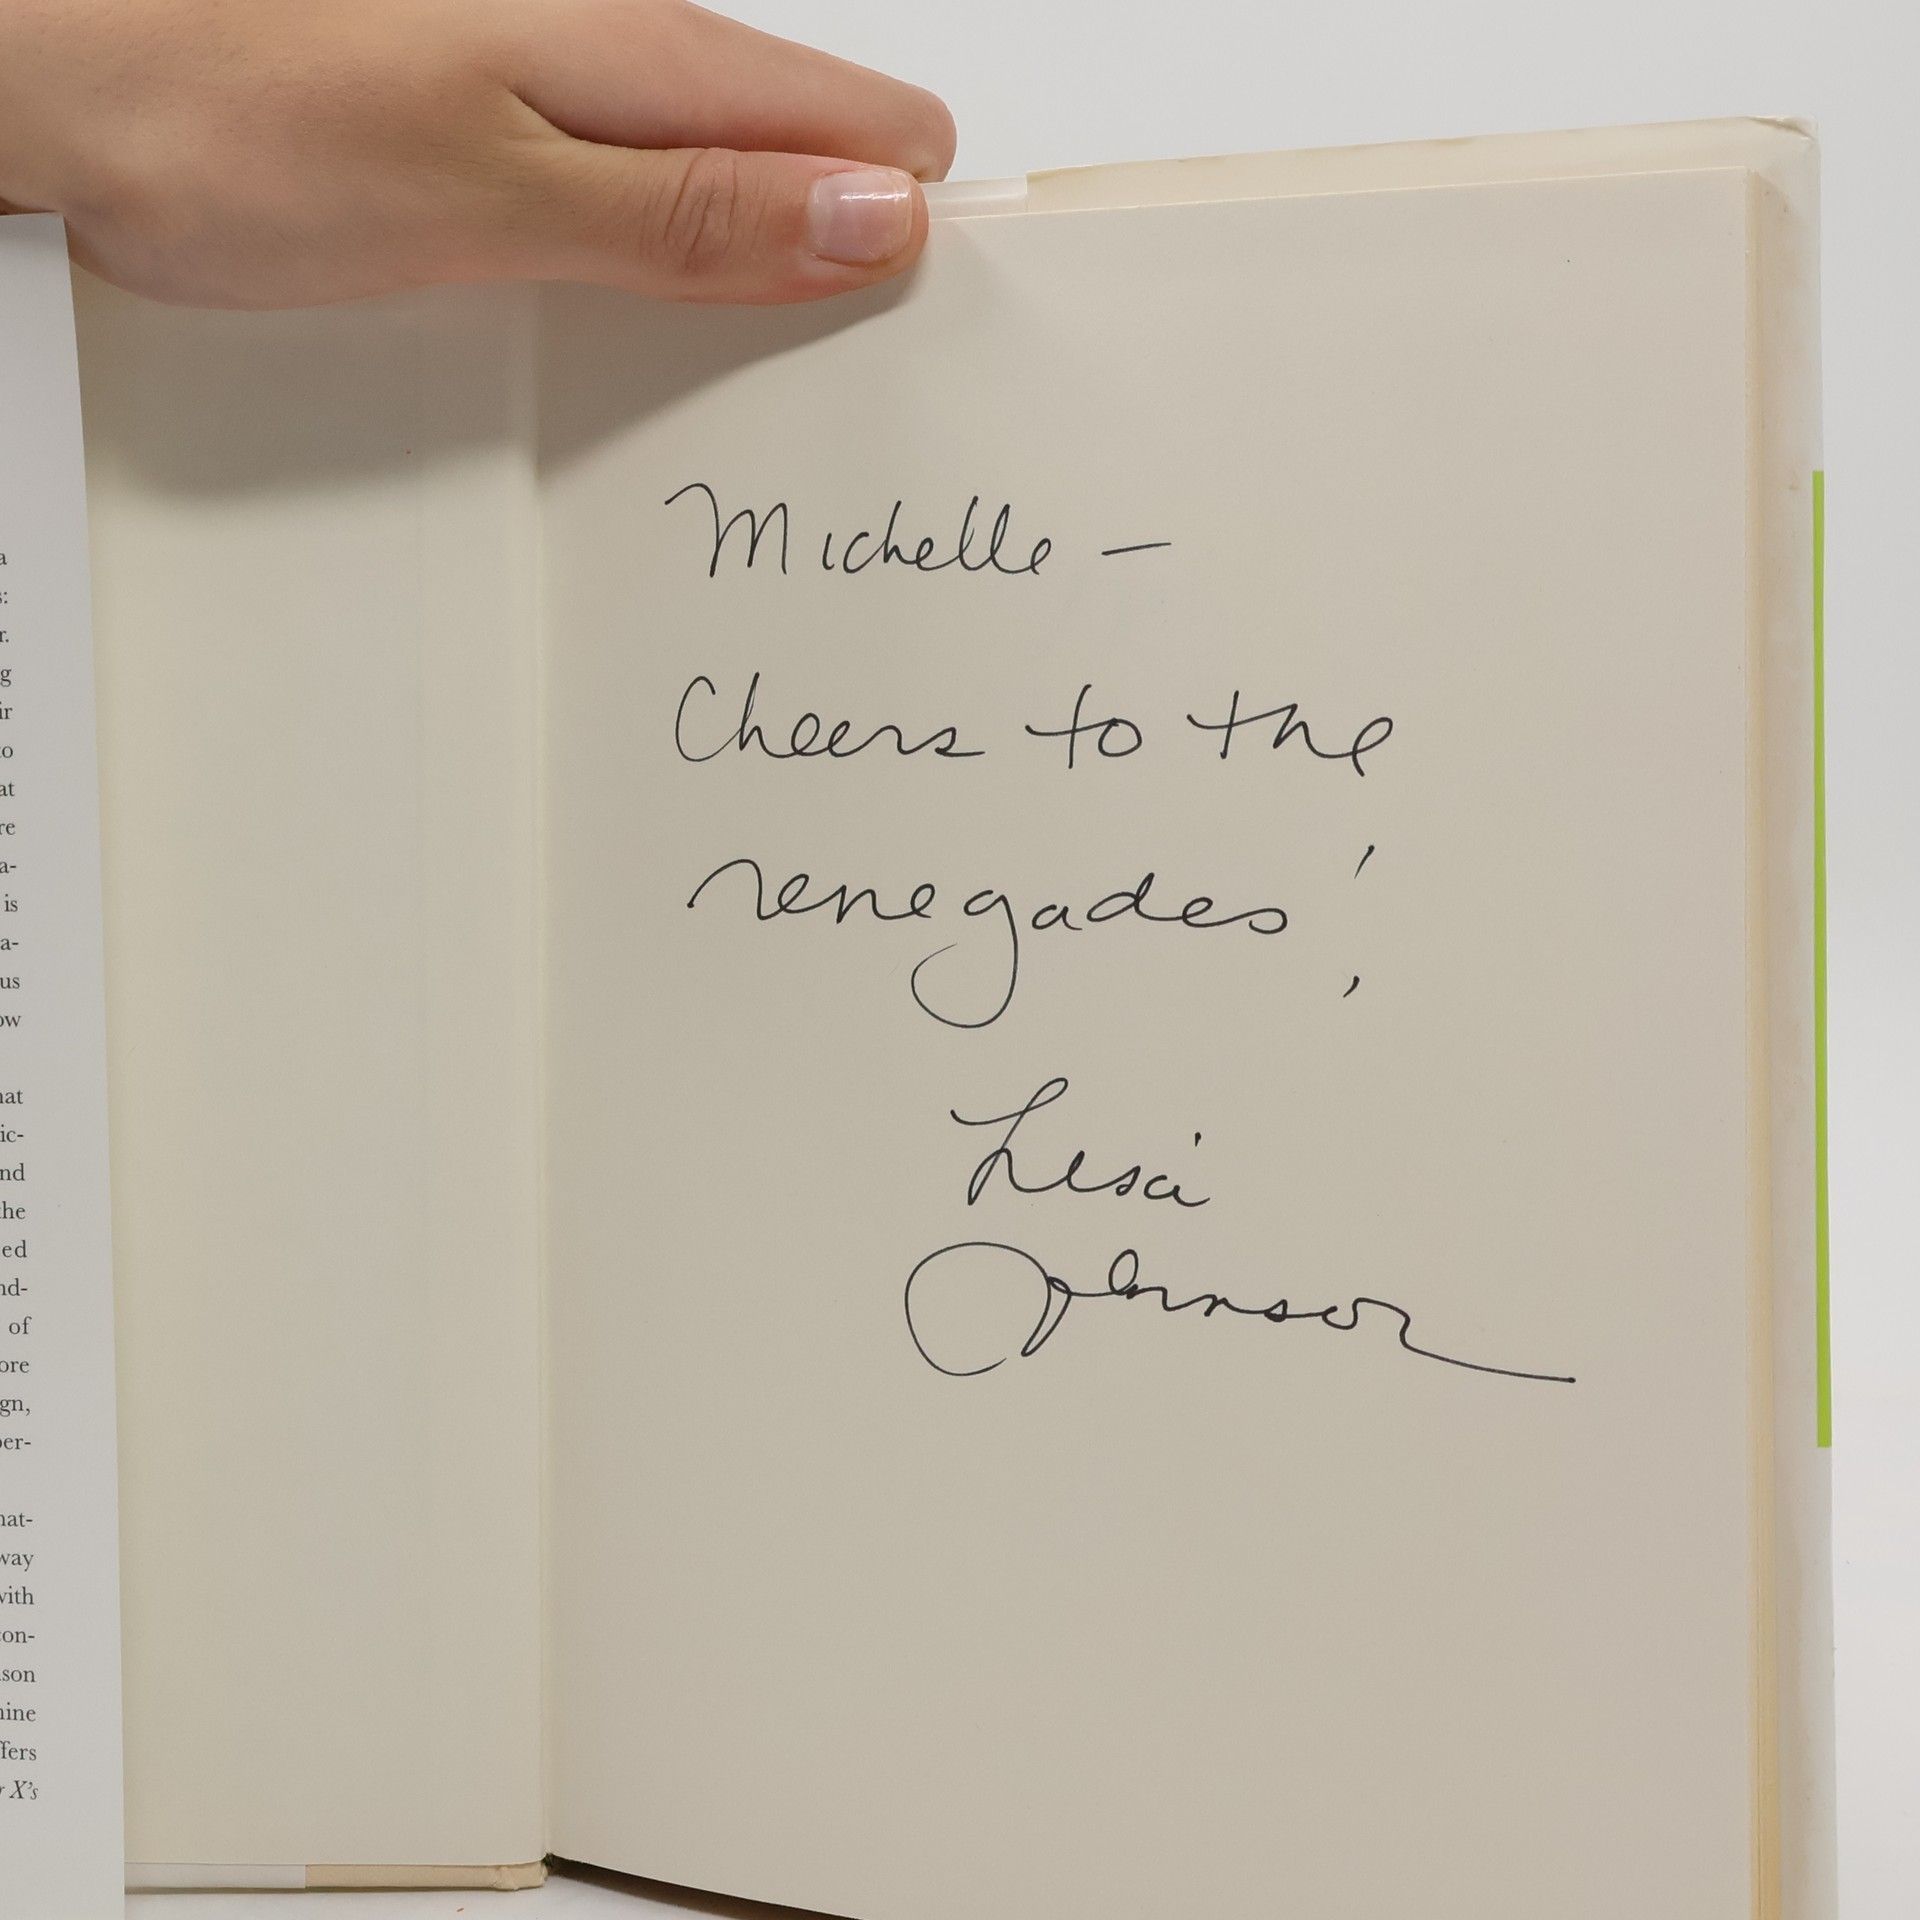 a
s:
r.
g
ir
to
at
re
a-
is
a-
us
ow
hat
ic-
nd
the
ed
nd-
of
ore
gn,
per-
hat-
way
with
con-
nson
nine
ffers
r X's
Michelle —
Cheers to the
renegades!
Lisa
Johnson